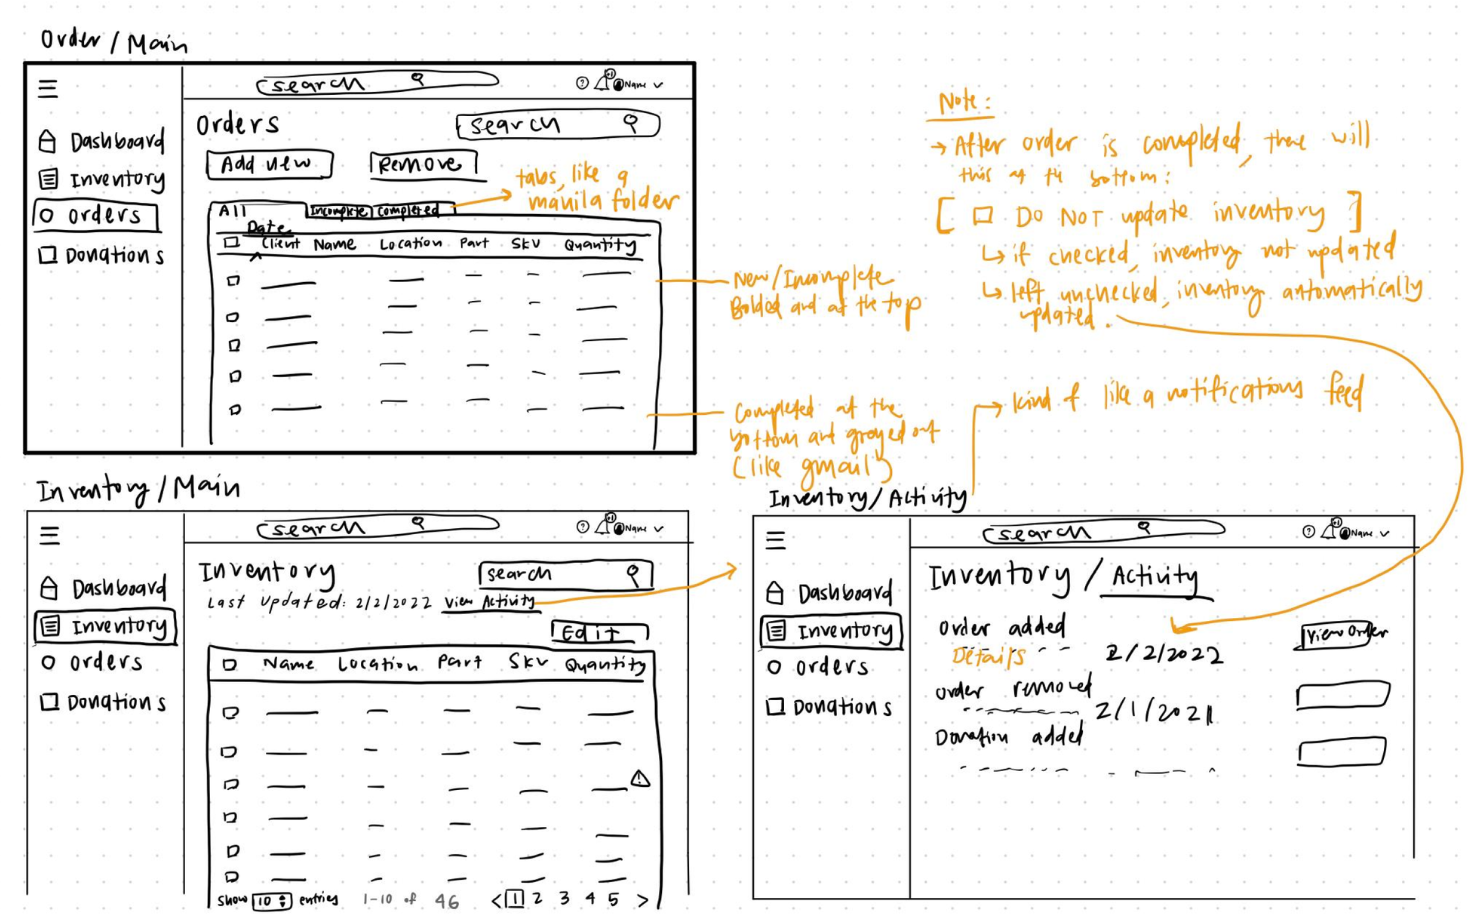 Order / Main
search
? +1 Name
Dashboard
Inventory
Orders
Donations
Orders
search
Add new
Remove
All
Incomplete
Completed
Date
Client Name Location Part SKU Quantity
tabs, like a
manila folder
New/Incomplete
Bolded and at the top
Completed at the
bottom and greyed out
(like gmail)
Note:
→ After order is completed, there will
this at the bottom:
[ □ Do NOT update inventory ]
↳ if checked, inventory not updated
↳ left unchecked, inventory automatically
updated.
→ kind of like a notifications feed
Inventory / Main
search
? +1 Name
Dashboard
Inventory
Orders
Donations
Inventory
search
Last Updated: 2/2/2022 View Activity
Edit
Name Location Part SKU Quantity
show 10 entries 1-10 of 46 < 1 2 3 4 5 >
Inventory/Activity
search
? +1 Name
Dashboard
Inventory
Orders
Donations
Inventory / Activity
Order added
Details
2/2/2022
View Order
Order removed
2/1/2021
Donation added